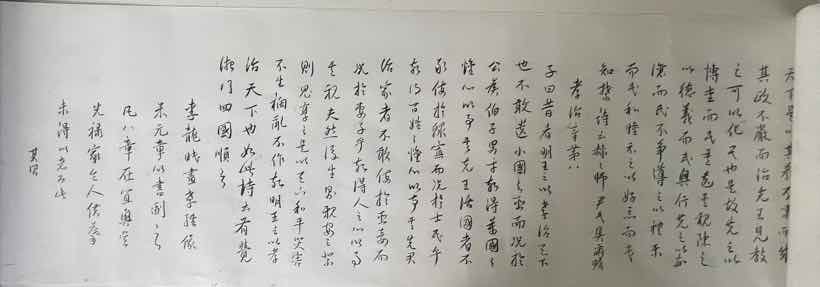 天下是以其教不肅而成
其政不嚴而治先王見教
之可以化民也是故先之以
博愛而民莫遺其親陳之
以德義而民興行先之以敬
讓而民不爭導之以禮樂
而民和睦示之以好惡而民
知禁詩云赫赫師尹民具爾瞻
孝治章第八
子曰昔者明王之以孝治天下
也不敢遺小國之臣而況於
公侯伯子男乎故得萬國之
懽心以事其先王治國者不
敢侮於鰥寡而況於士民乎
故得百姓之懽心以事其先君
治家者不敢侮於臣妾而
況於妻子乎故得人之心以事
其親夫然故生則親安之祭
則鬼享之是以天下和平災害
不生禍亂不作故明王之以孝
治天下也如此詩云有覺
德行四國順之
李龍眠畫孝經
米元章以書副之
凡八章在宜興
家
未得以
其昌